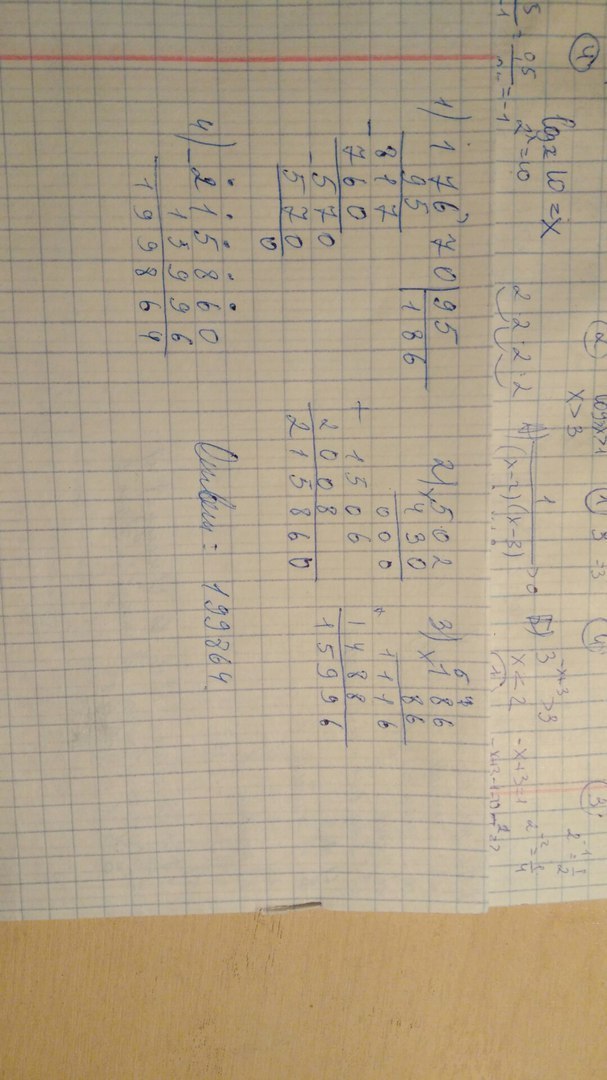 1) 17670 | 95
95 | 186
- 817
760
- 570
570
0
2) × 502
430
000
+ 1506
2008
215860
3) × 186
86
+ 1116
1488
15996
4) - 215860
15996
199864
Ответ: 199864.
4
log₂ 10 = x
2ˣ = 10
2 2 2 2
2
x > 3
1
(x-2)(x-3)
> 0
Б) 3⁻ˣ⁺³ > 3
x < 2
-x+3=1
2⁻¹ = 1/2
2⁻² = 1/4